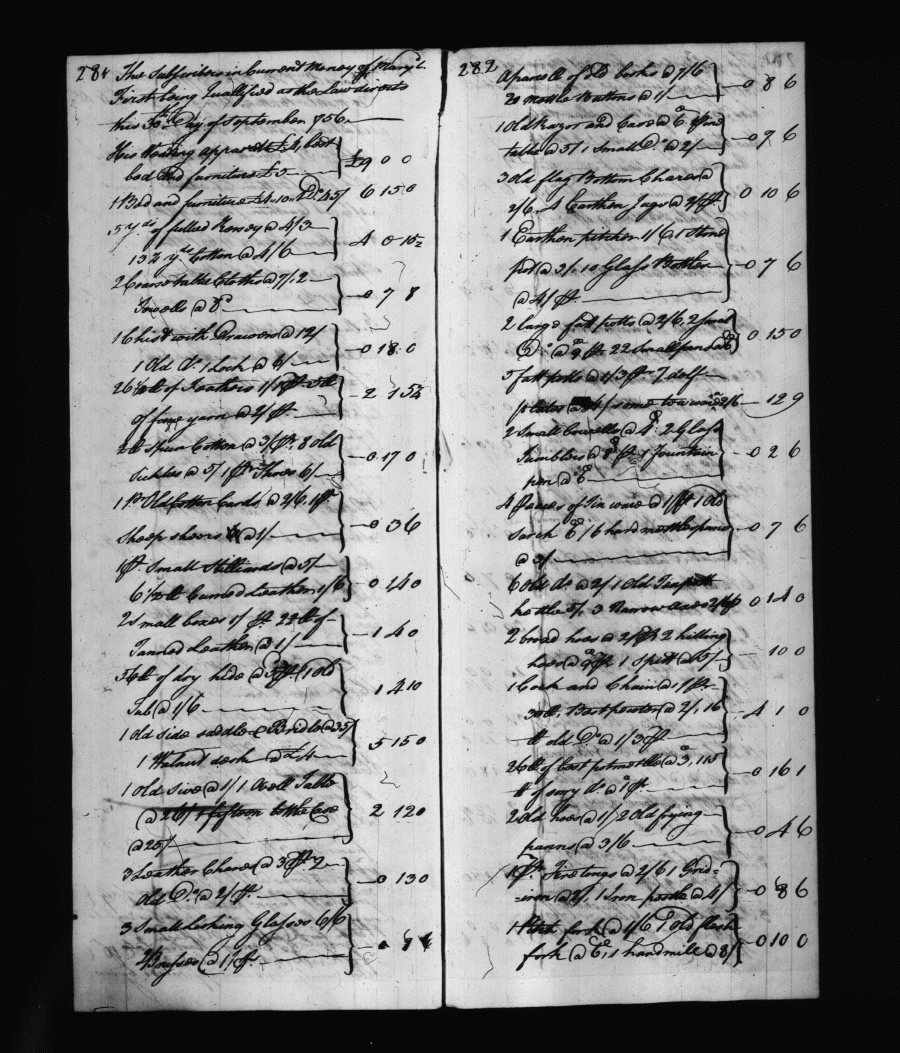 281
The Subscribers in Current Money of Maryd.
First being Quallifyed as the Law directs
this 30th Day of September 1756
His Wearing apparell £4, best
bed and furniture £5 £9 0 0
1 Bed and furniture £4..10.. Do. 45/ 6 15 0
5 yds of fulled Kersey @ 4/3
13¾ yds Cotton @ 4/6 4 0 10½
2 Coarse table Cloths @ 7/, 2
Towells @ 8d 0 7 8
1 Chist with Drawers @ 12/
1 Old do. 1 Lock @ 6/ 0 18 0
26 lb of Feathers 1/
of fine yarn @ 2/ 2 1 5½
2 lb Spun Cotton @ 3/ 8 old
Sickles @ 5/ 1 pr Shoes 6/ 0 17 0
1 pr Old Cotton Cards @ 2/6, 1 pr
Sheep sheers @ 1/ 0 3 6
1 pr Small Stilliards @ 5/
6½ lb Curried Leather 1/6 0 14 0
2 Small boxes 1/ pr 22 lb of
Tanned Leather @ 1/ 1 4 0
lb of dry hide @ 1 old
Tub @ 1/6 1 4 10
1 Old side saddle & Bridle @ 35/
1 Walnut desk @ £4 5 15 0
1 old Sive @ 1/ 1 Ovell Table
@ 26/ 1 fifteen bottle Case
@ 25/ 2 12 0
3 Leather Chares @ 3/ pr 2
Old Do. @ 2/ pr 0 13 0
3 Small Looking Glasses 6/6
Brushes @ 1/ pr 0
282
A parcell of Old books @ 7/6
20 Mettle Buttons @ 1/ 0 8 6
1 Old Razor and Case @ 6d 1 pine
table @ 5/ 1 Small Do @ 2/ 0 7 6
3 old flag Bottom Chares @
2/6, Earthen Jugs @ pr 0 10 6
1 Earthen pitcher 1/6 1 Stone
pot @ 2/, 10 Glass Bottles
@ 4/ pr 0 7 6
2 large fatt potts @ 2/6, 2 small
Do @ 9d pr 22 Small pans 0 15 0
5 fatt potts @ 1/3 pr 7 delf
plates @ some tea ware 2/6 12 9
2 Small bowells @ 4d: 2 Glass
Tumblers @ 8d pr 1 fountain
pen @ 6d 0 2 6
4 Pieces of Tin ware @ 1/ pr 1 Old
6d / 6 hard mettle spoons
@ 3/ 0 7 6
6 old do @ 2/ 1 Old Tea
kettle 5/ 3 Narrow axes 0 14 0
2 broad hoes @ 2/ pr 2 hilling
hoes @ 9d pr 1 Spitt @ 5/ 10 0
1 Cock and Chain @ 1/ pr
30 lb. Best pewter @ 2/, 16
lb old Do @ 1/3 pr 4 1 0
26 lb of best pot mettle @ 3d, 115
lb of sorry do @ 1d pr 0 16 1
2 Old hoes @ 1/ 2 Old frying
panns @ 3/6 0 4 6
1 pr Fire tongs @ 2/6 1 Grid=
=iron @ 2/, 1 Iron pestle @ 4/ 0 8 6
1 Pitch fork @ 1/6 1 old flesh
fork @ 6d, 1 handmill @ 8/ 0 10 0